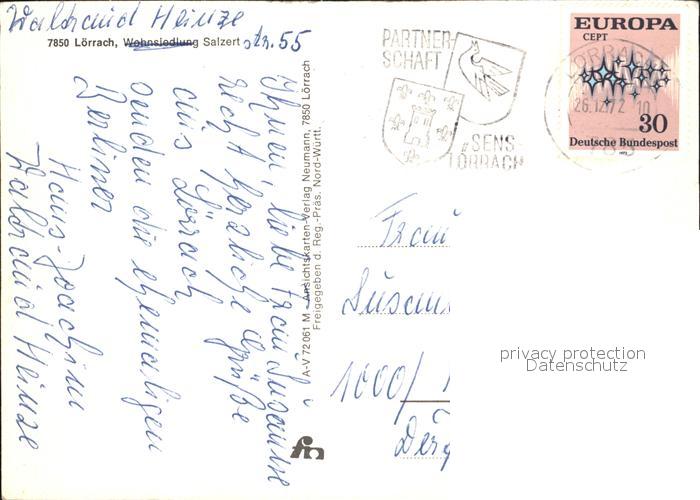 Waldraud Heinze
7850 Lörrach, Wohnsiedlung Salzert str. 55
Ihnen, liebe Frau Susanne
recht herzliche Grüße
aus Lörrach
senden die ehemaligen
Berliner
Hans-Joachim
Waldraud Heinze
A-V 72061 M - Ansichtskarten-Verlag Neumann, 7850 Lörrach
Freigegeben d. Reg.-Präs. Nord-Württ.
fm
PARTNER-
SCHAFT
SENS
LÖRRACH
LÖRRACH
26.12.72 10
785
EUROPA
CEPT
30
Deutsche Bundespost
Frau
Susan
1000/
privacy protection
Datenschutz